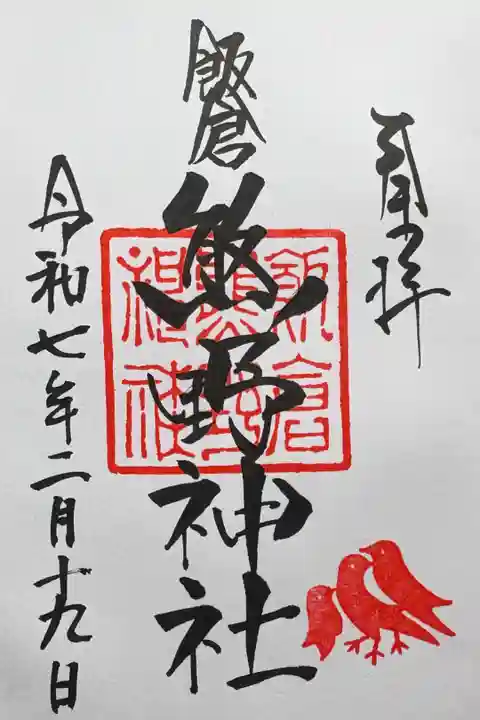 奉拝
飯倉
熊野神社
飯倉
熊野
神社
令和七年二月十九日